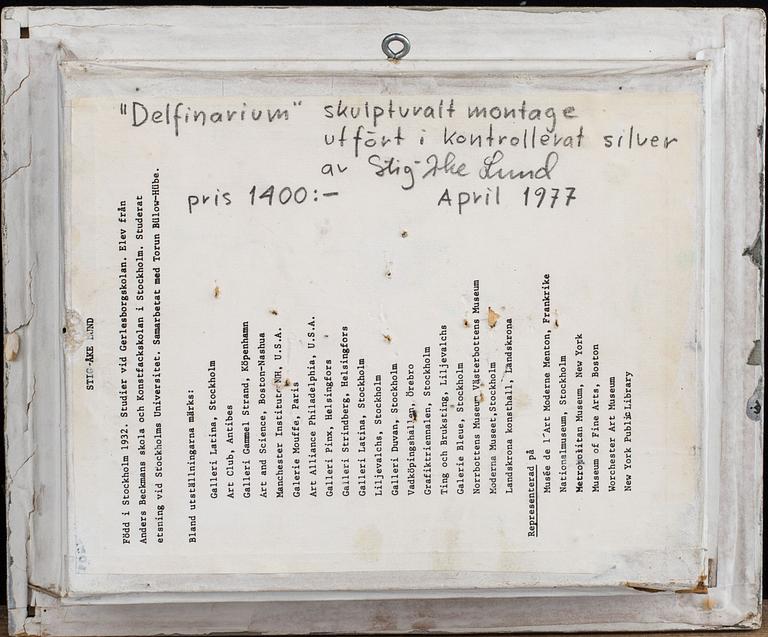 "Delfinarium" skulpturalt montage
utfört i kontrollerat silver
av Stig-Åke Lund
pris 1400:- April 1977
STIG-ÅKE LUND
Född i Stockholm 1932. Studier vid Gerlesborgskolan. Elev från
Anders Beckmans skola och Konstfackskolan i Stockholm. Studerat
etsning vid Stockholms Universitet. Samarbetat med Torun Bülow-Hübe.
Bland utställningarna märks:
Galleri Latina, Stockholm
Art Club, Antibes
Galleri Gammel Strand, Köpenhamn
Art and Science, Boston-Nashua
Manchester Institute NH, U.S.A.
Galerie Mouffe, Paris
Art Alliance Philadelphia, U.S.A.
Galleri Pinx, Helsingfors
Galleri Strindberg, Helsingfors
Galleri Latina, Stockholm
Liljevalchs, Stockholm
Galleri Duvan, Stockholm
Vadköpingshallen, Örebro
Grafiktriennalen, Stockholm
Ting och Bruksting, Liljevalchs
Galerie Bleue, Stockholm
Norrbottens Museum, Västerbottens Museum
Moderna Museet, Stockholm
Landskrona konsthall, Landskrona
Representerad på
Musée de l'Art Moderne Menton, Frankrike
Nationalmuseum, Stockholm
Metropolitan Museum, New York
Museum of Fine Arts, Boston
Worchester Art Museum
New York Public Library